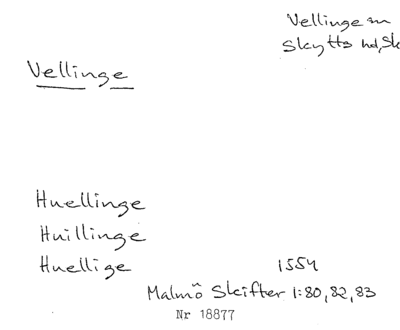 Vellinge sn
Skytts hd, Sk
Vellinge
Huellinge
Huillinge
Huellige 1554
Malmö Skifter 1:80, 82, 83
Nr 18877